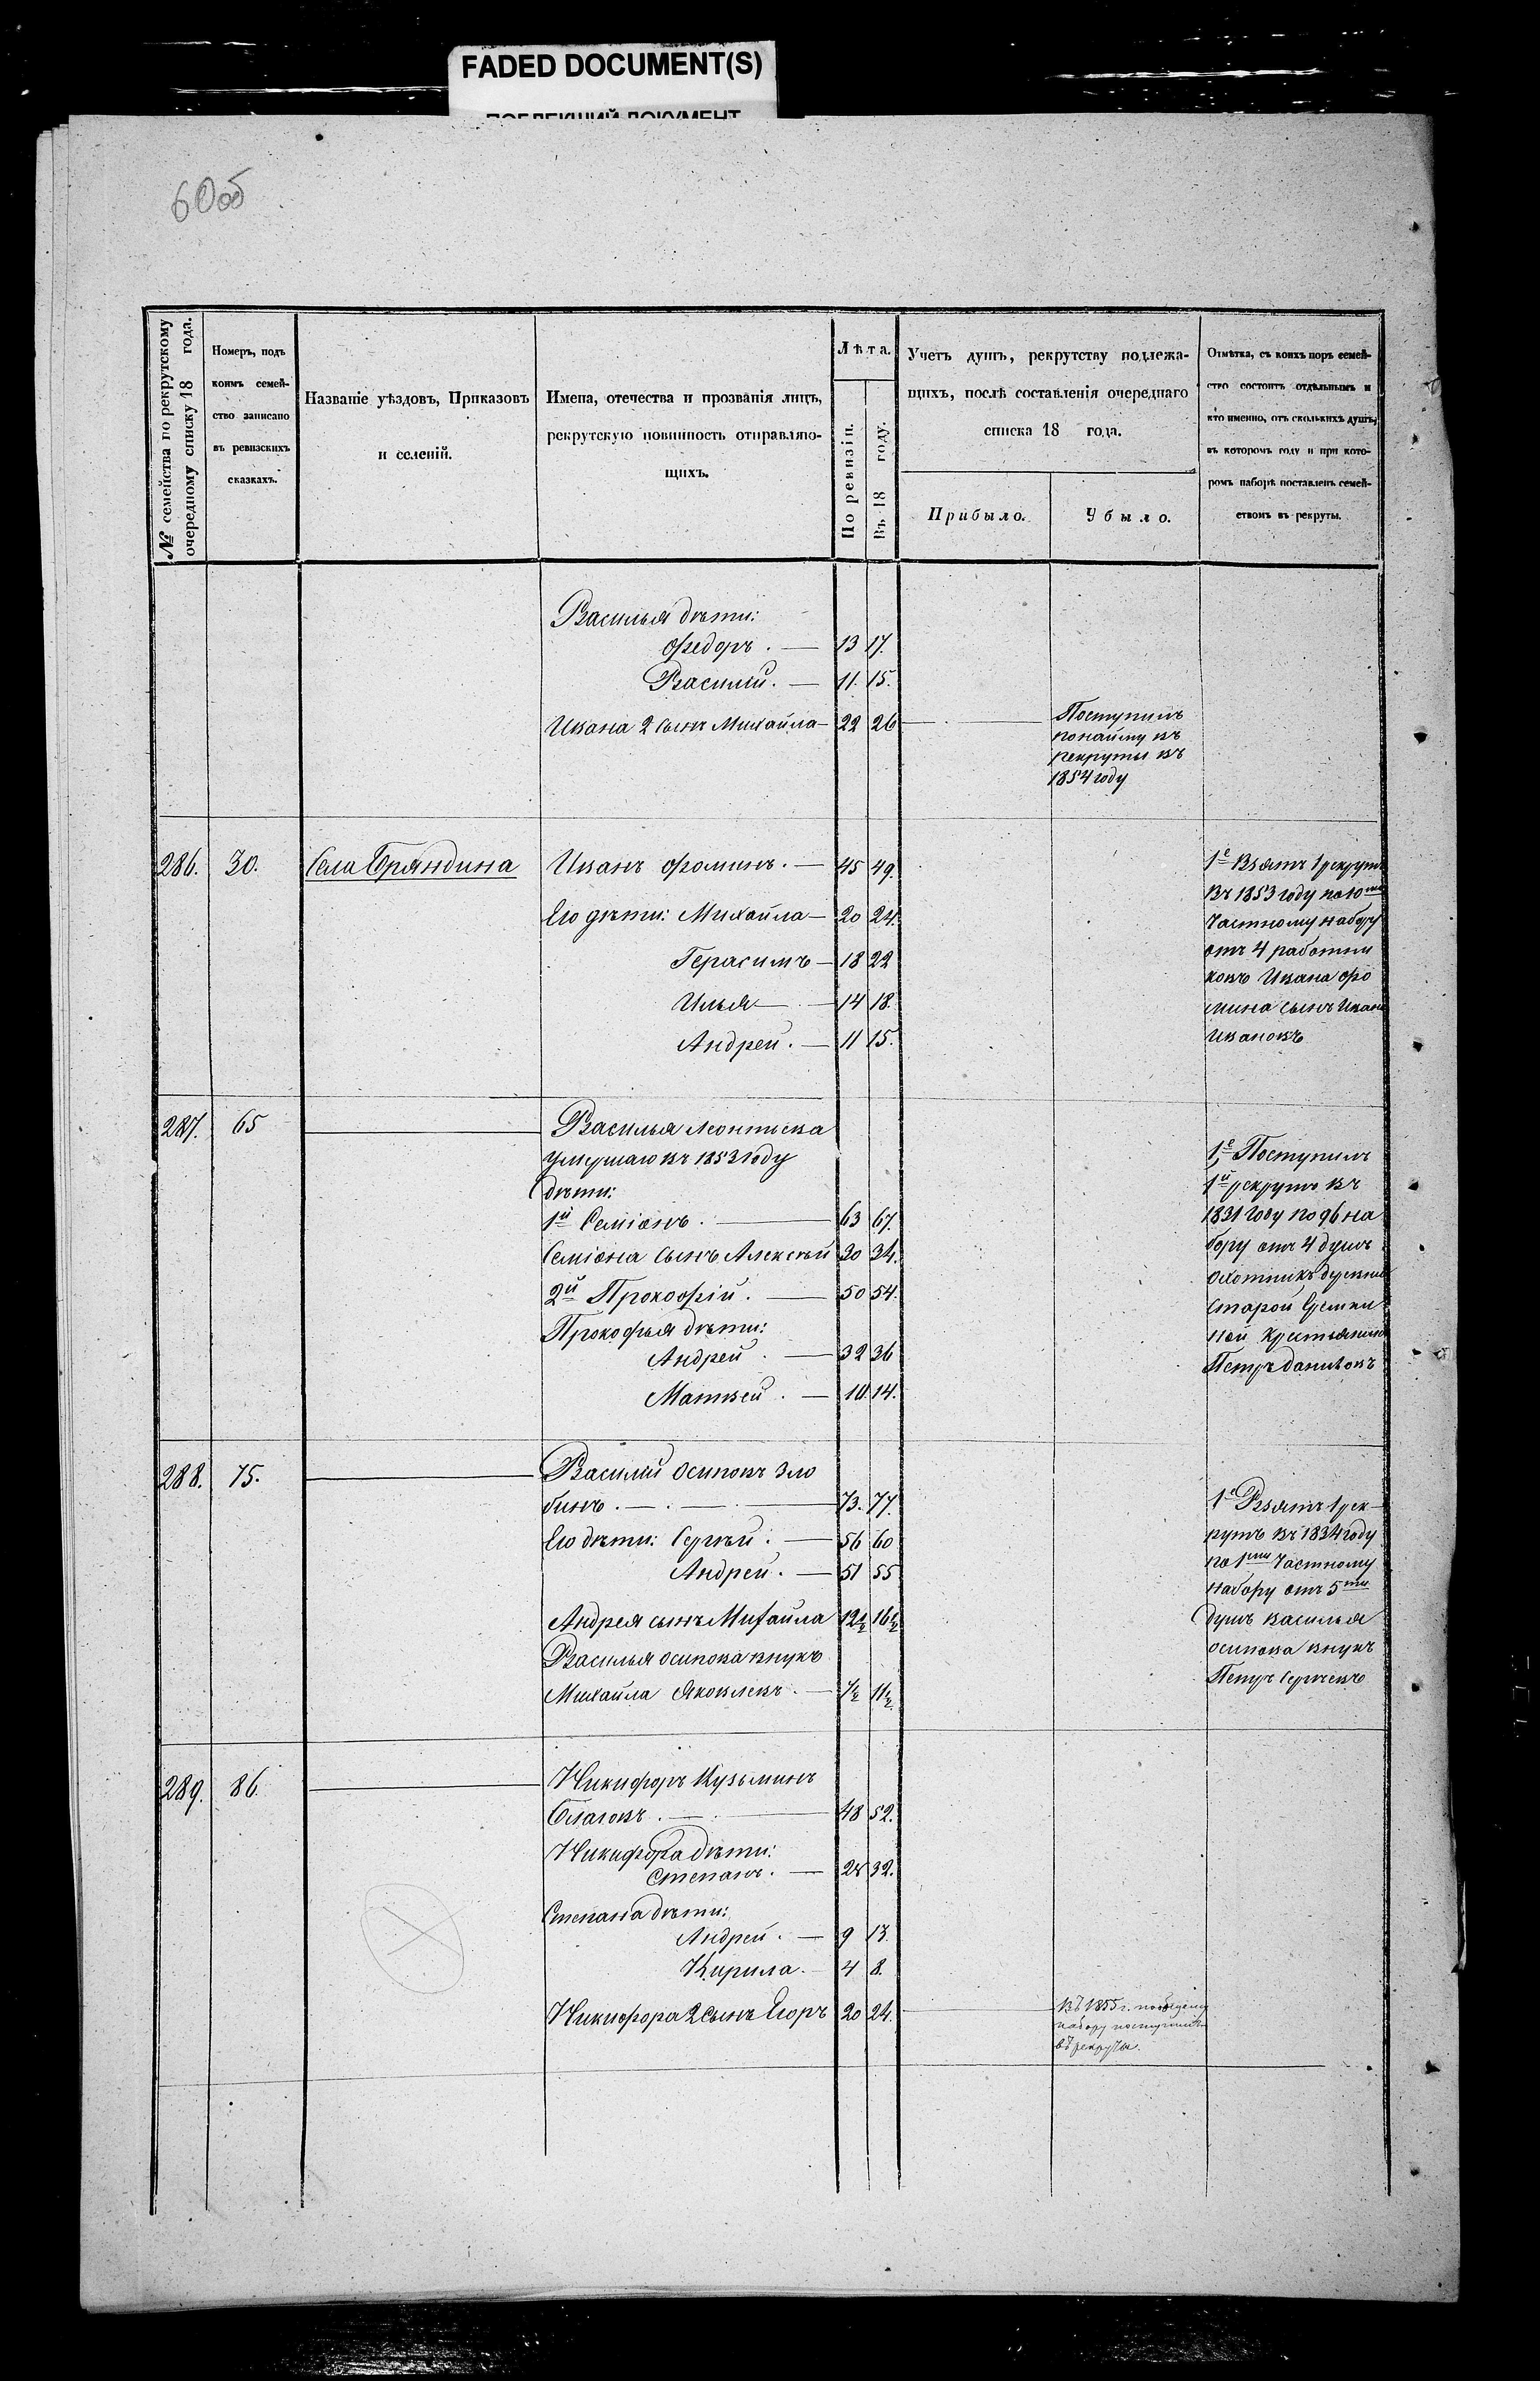 FADED DOCUMENT(S)
ПОБЛЕКШИЙ ДОКУМЕНТ
60об
№ семейства по рекрутскому
очередному списку 18 года.
Номеръ, подъ
коимъ семей-
ство записано
въ ревизскихъ
сказкахъ.
Названіе уѣздовъ, Приказовъ
и селеній.
Имена, отечества и прозванія лицъ,
рекрутскую повинность отправляю-
щихъ.
Лѣта.
По ревизіи.
Въ 18 году.
Учетъ душъ, рекрутству подлежа-
щихъ, послѣ составленія очереднаго
списка 18 года.
Прибыло.
Убыло.
Отмѣтка, съ коихъ поръ семей-
ство состоитъ отдѣльнымъ и
кто именно, отъ сколькихъ душъ,
въ которомъ году и при кото-
ромъ наборѣ поставленъ семей-
ствомъ въ рекруты.
Василья дѣти:
Федоръ. — 13 17.
Василий. — 11. 15.
Ивана 2 сынъ Михайла — 22 26
Поступилъ
понайму въ
рекруты въ
1854 году
286. 30. Села Бряндина Иванъ Фоминъ. — 45 49.
Его дѣти: Михайла — 20 24.
Герасимъ — 18 22
Илья — 14 18.
Андрей. — 11 15.
1е Взятъ 1 рекрутъ
въ 1853 году по 10му
частному набору
отъ 4 работни
ковъ Ивана Фо
мина сынъ Иванъ
Ивановъ
287. 65 Василья Леонтьева
умершаго въ 1853 году
дѣти:
1й Семіонъ. — 63 67.
Семіона сынъ Алексѣй 30 34.
2й Прокофій. — 50 54.
Прокофья дѣти:
Андрей. — 32 36
Матвей. — 10. 14.
1е Поступилъ
1й рекрутъ въ
1831 году по 96 на
бору отъ 4 душъ
охотникъ деревни
Старой
крестьянинъ
Петръ Даниловъ
288. 75. Василий Осиповъ Зло
бинъ. — 73. 77.
Его дѣти: Сергѣй. — 56 60
Андрей. — 51 55
Андрея сынъ Михайла 12½ 16½
Василья Осипова внукъ
Михайла Яковлевъ. — 7½ 11½
1е Взятъ 1 рек-
рутъ въ 1834 году
по 1му частному
набору отъ 5ти
душъ Василья
Осипова внукъ
Петръ Сергѣевъ
289. 86. Никифоръ Кузьминъ
Благовъ. — 48 52.
Никифора дѣти:
Степанъ. — 28 32.
Степана дѣти:
Андрей. — 9 13.
Кирила. — 4 8.
Никифора 2 сынъ Егоръ 20 24.
Въ 1855 г.
набору поступилъ
въ рекруты.